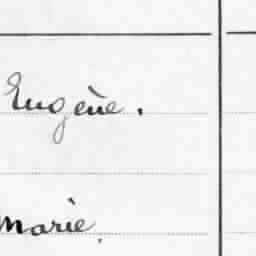 Eugène.
Marie.